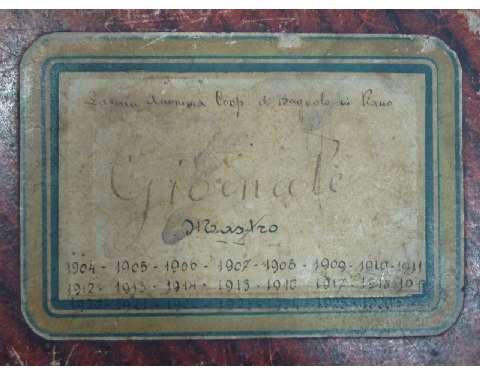 Anonima Coop di Bagnolo in Piano
Giornale
Mastro
1904 - 1905 - 1906 - 1907 - 1908 - 1909 - 1910 - 1911
1912 - 1913 - 1914 - 1915 - 1916 - 1917 - 1918